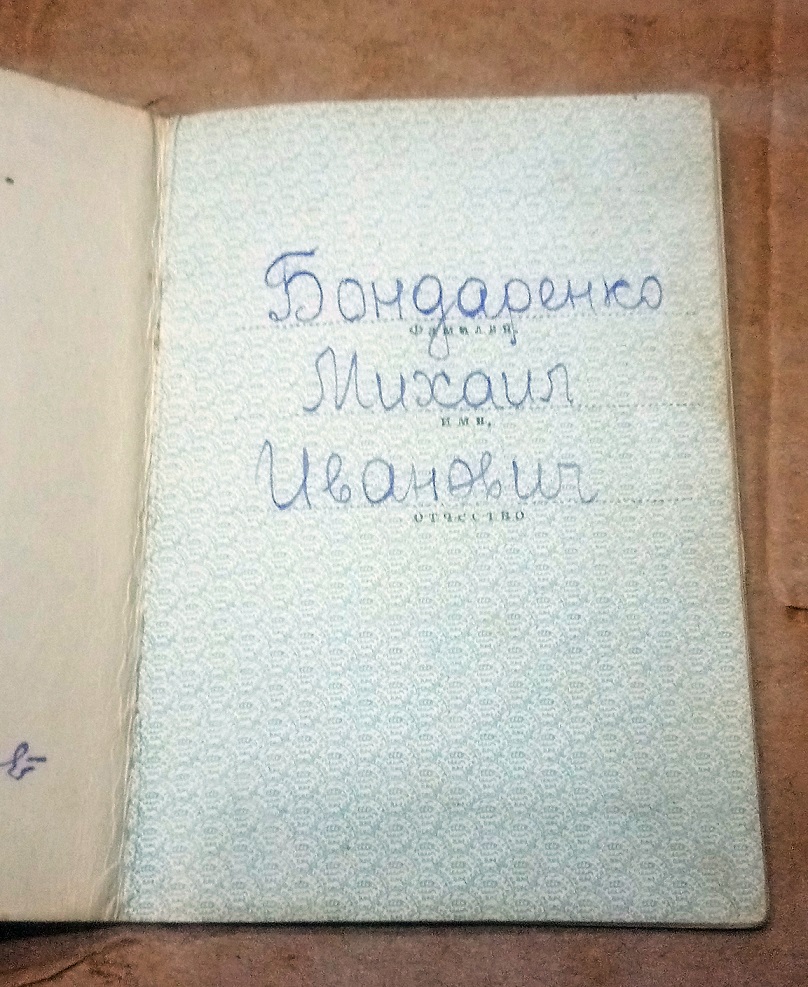 Бондаренко
Фамилия,
Михаил
имя,
Иванович
отчество